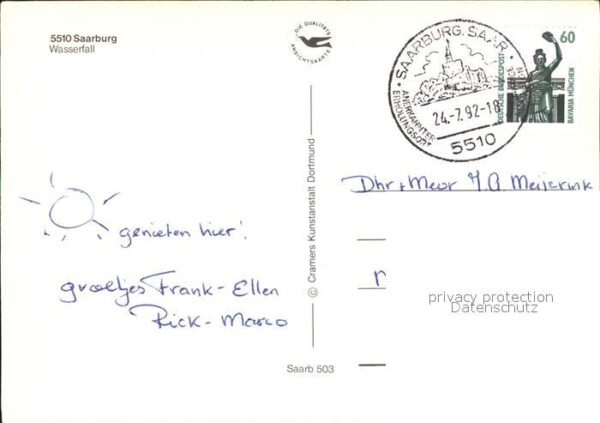 5510 Saarburg
Wasserfall
DIE QUALITÄTS
ANSICHTSKARTE
SAARBURG, SAAR
ANERKANNTER
ERHOLUNGSORT
24.-7.92-18
5510
60
DEUTSCHE BUNDESPOST
BAVARIA MÜNCHEN
Dhr + Mevr
genieten hier!
groetjes Frank - Ellen
Rick - Marco
© Cramers Kunstanstalt Dortmund
Saarb 503
privacy protection
Datenschutz